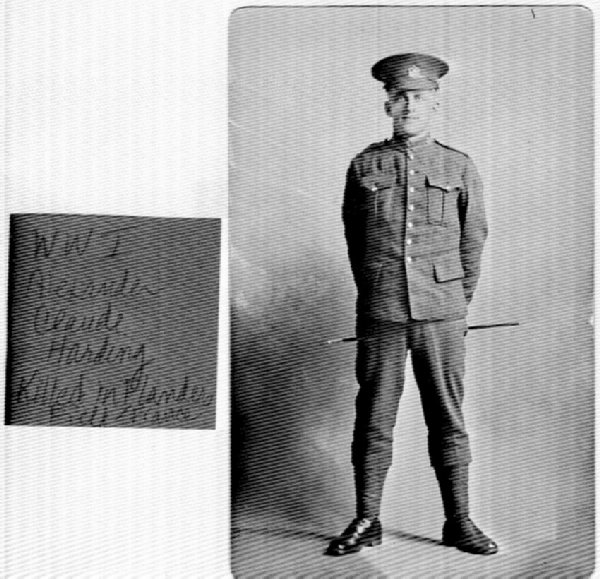 WW I
Alexander
Claude
Harding
Killed in Flanders
Field France